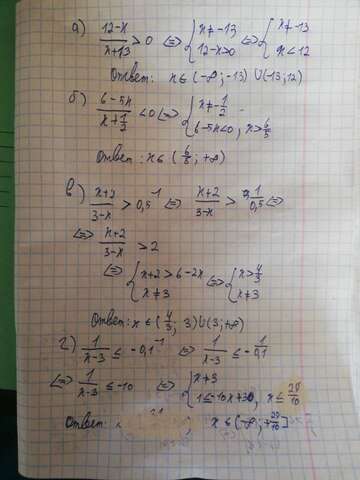 а) (12-x)/(x+13) > 0 ⇔ { x≠-13 ; 12-x>0 ⇔ { x≠-13 ; x<12
Ответ: x∈(-∞;-13)∪(-13;12)
б) (6-5x)/(x+1/2) < 0 ⇔ { x≠-1/2 ; 6-5x<0, x>6/5
Ответ: x∈(6/5; +∞)
в) (x+2)/(3-x) > 0,5⁻¹ ⇔ (x+2)/(3-x) > 1/0,5 ⇔
⇔ (x+2)/(3-x) > 2
⇔ { x+2>6-2x ; x≠3 ⇔ { x>4/3 ; x≠3
Ответ: x∈(4/3; 3)∪(3;+∞)
г) 1/(x-3) ≤ -0,1⁻¹ ⇔ 1/(x-3) ≤ -1/0,1
⇔ 1/(x-3) ≤ -10 ⇔ { x≠3 ; 1≤-10x+30, x≤29/10
Ответ: x∈(-∞; 29/10]